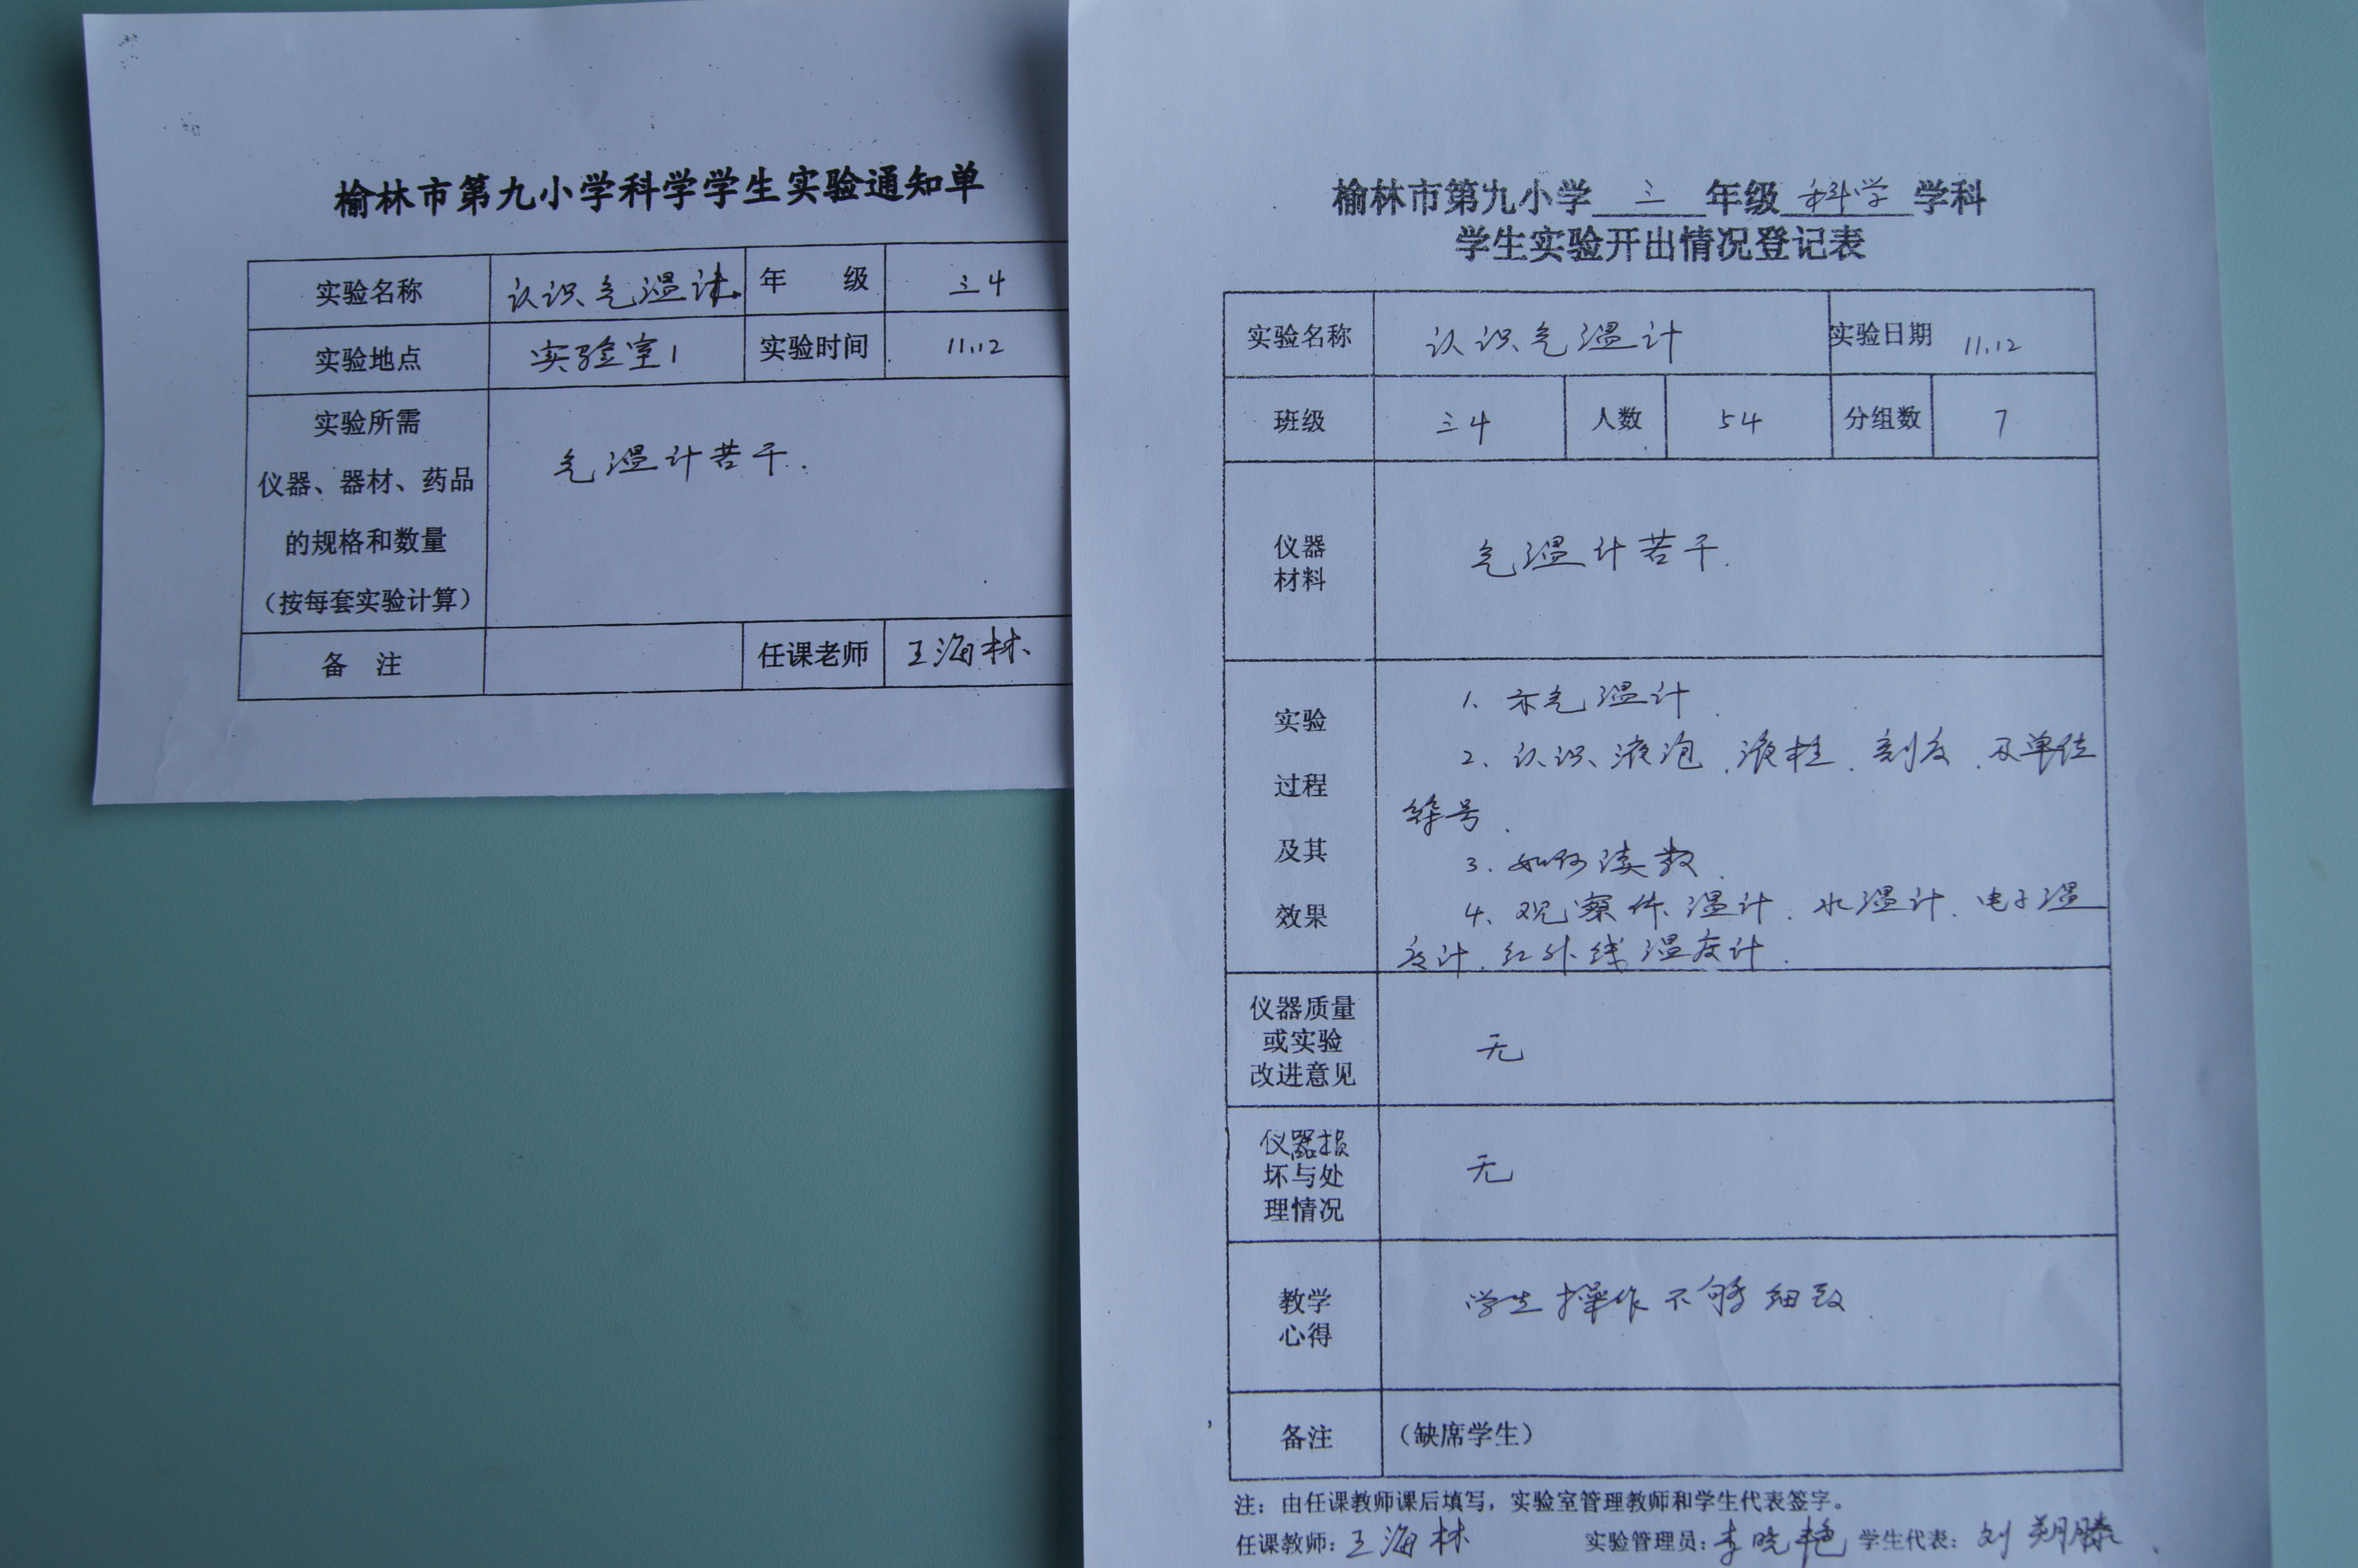 榆林市第九小学科学学生实验通知单
实验名称 认识气温计. 年 级 三4
实验地点 实验室1 实验时间 11.12
实验所需
仪器、器材、药品
的规格和数量
（按每套实验计算）
气温计若干.
备 注 任课老师 王海林
榆林市第九小学 三 年级 科学 学科
学生实验开出情况登记表
实验名称 认识气温计 实验日期 11.12
班级 三4 人数 54 分组数 7
仪器
材料
气温计若干.
实验
过程
及其
效果
1. 示气温计.
2. 认识液泡.液柱.刻度.及单位
符号.
3. 如何读数.
4. 观察体温计.水温计.电子温
度计.红外线温度计.
仪器质量
或实验
改进意见
无
仪器损
坏与处
理情况
无
教学
心得
学生操作不够细致.
备注 （缺席学生）
注：由任课教师课后填写，实验室管理教师和学生代表签字。
任课教师：王海林 实验管理员：李晓艳 学生代表：刘朔滕